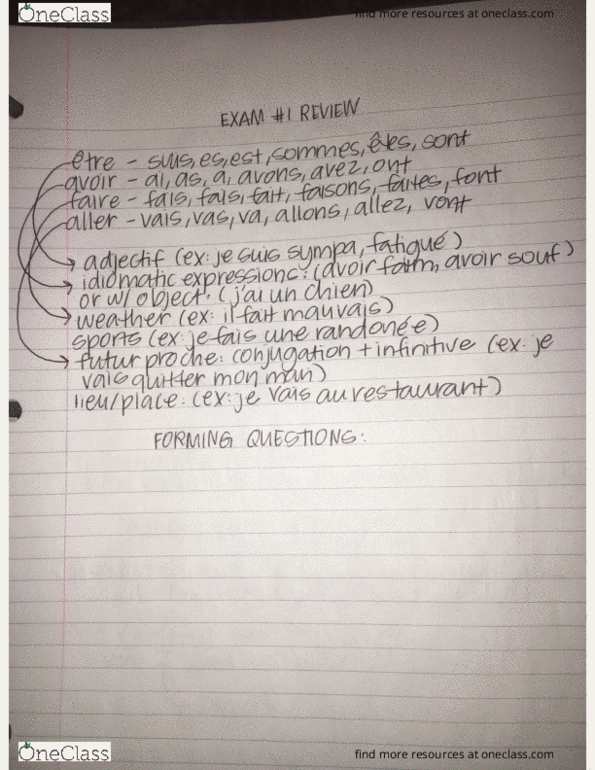 OneClass
find more resources at oneclass.com
EXAM #1 REVIEW
être - suis, es, est, sommes, êtes, sont
avoir - ai, as, a, avons, avez, ont
faire - fais, fais, fait, faisons, faites, font
aller - vais, vas, va, allons, allez, vont
adjectif (ex: je suis sympa, fatigué)
idiomatic expressions: (avoir faim, avoir souf)
or w/ object. (j'ai un chien)
weather (ex: il fait mauvais)
sports (ex: je fais une randonée)
futur proche: conjugation + infinitive (ex: je
vais quitter mon man)
lieu/place: (ex: je vais au restaurant)
FORMING QUESTIONS:
OneClass
find more resources at oneclass.com